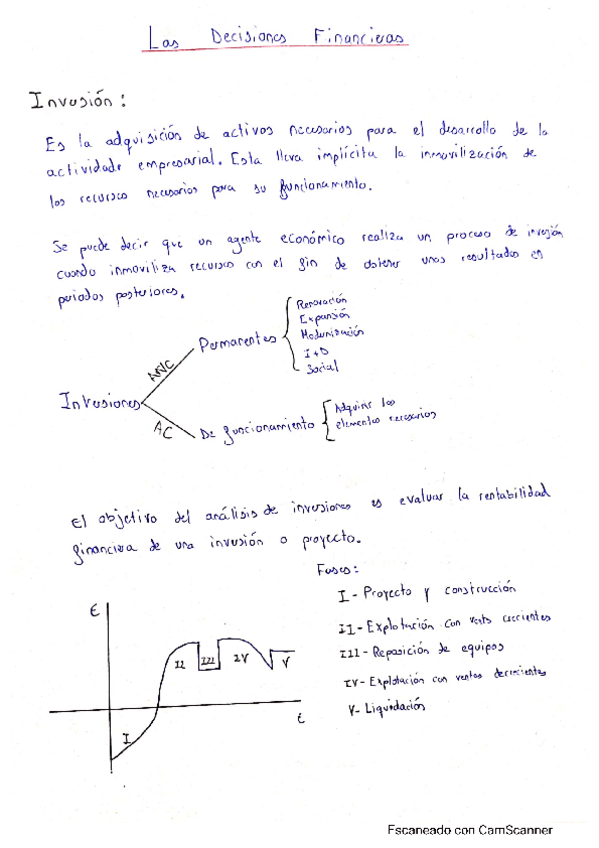 Las Decisiones Financieras
Inversión:
Es la adquisición de activos necesarios para el desarrollo de la
actividade empresarial. Esta lleva implícita la inmovilización de
los recursos necesarios para su funcionamiento.
Se puede decir que un agente económico realiza un proceso de inversión
cuando inmoviliza recursos con el fin de obtener unos resultados en
periodos posteriores.
Inversiones
ANC
Permanentes
Renovación
Expansión
Modernización
I+D
Social
AC
De funcionamiento
Adquirir los
elementos necesarios
El objetivo del análisis de inversiones es evaluar la rentabilidad
financiera de una inversión o proyecto.
Fases:
I- Proyecto y construcción
II- Explotación con ventas crecientes
III- Reposición de equipos
IV- Explotación con ventas decrecientes
V- Liquidación
€
I
II
III
IV
V
t
Escaneado con CamScanner